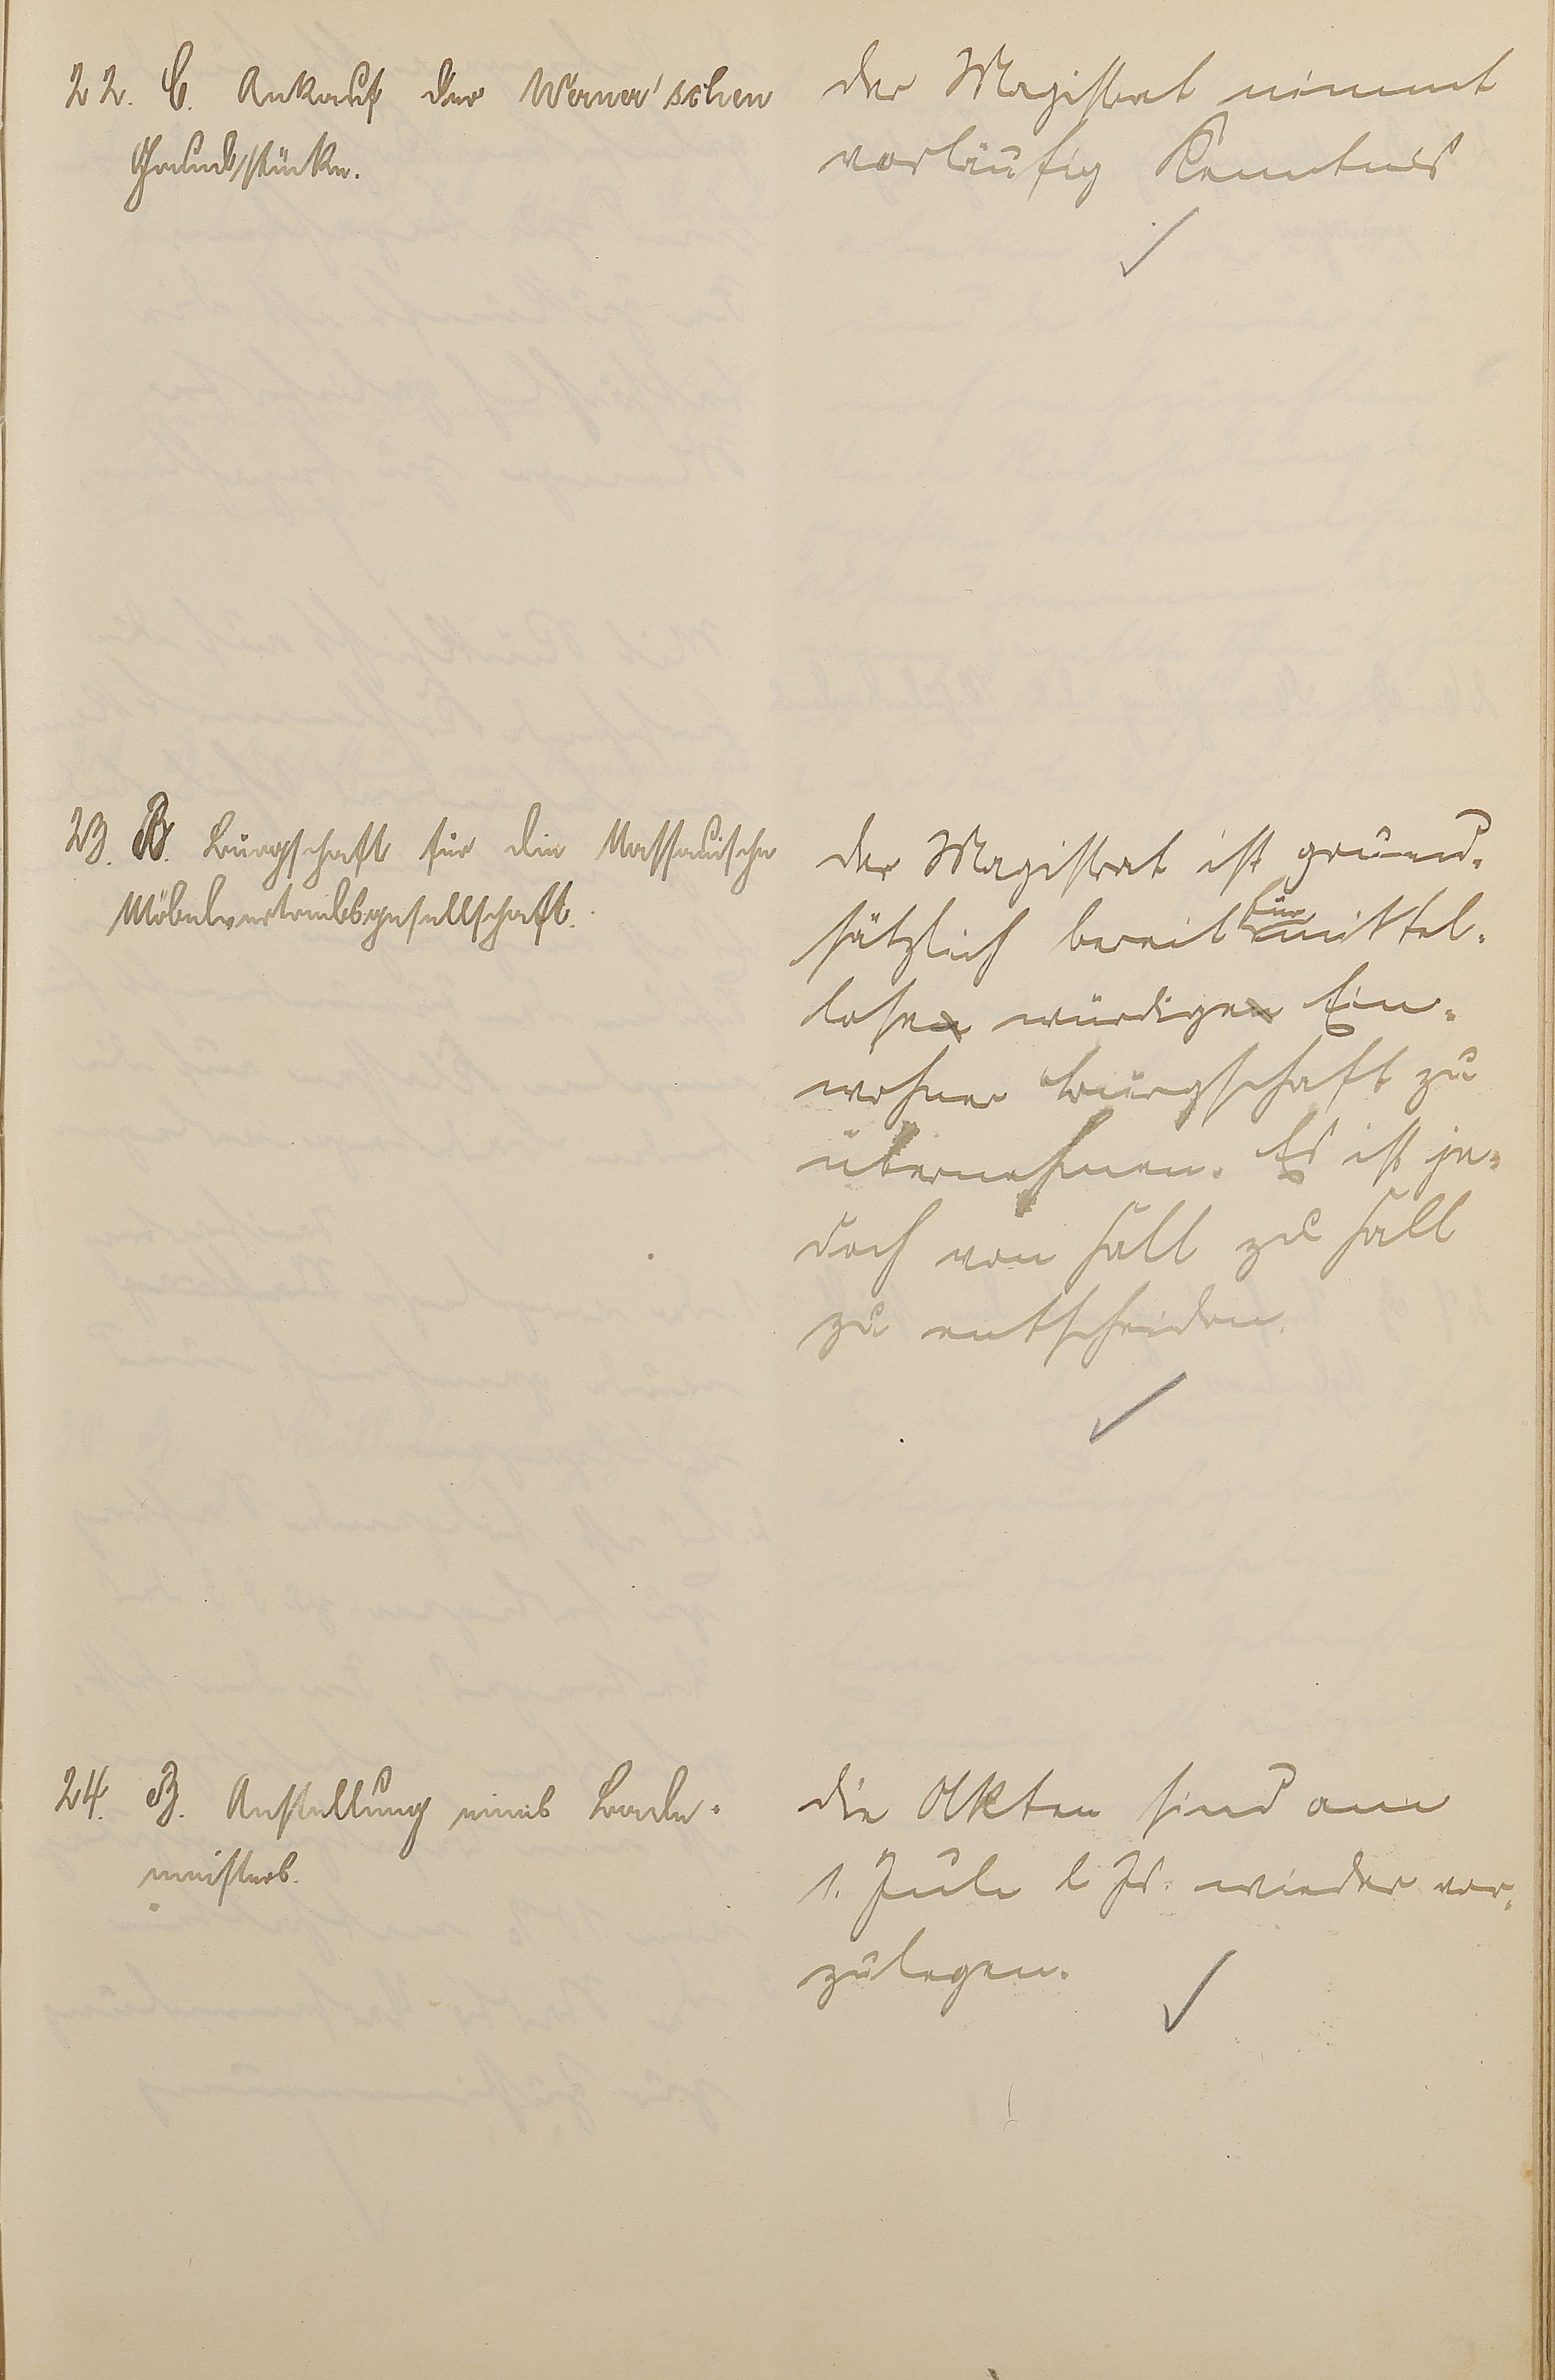 22. C. Ankauf der Werner'schen
Grundstücke.
der Magistrat nimmt
vorläufig Kenntnis
23. B. Bürgschaft für die Nassauische
Möbelvertriebsgesellschaft.
der Magistrat ist grund-
sätzlich bereit für mittel-
lose würdige Ein-
wohner Bürgschaft zu
übernehmen. Es ist je-
doch von Fall zu Fall
zu entscheiden.
24. B. Anstellung eines Bade-
meisters.
die Akten sind am
1. Juli l. Js. wieder vor-
zulegen.